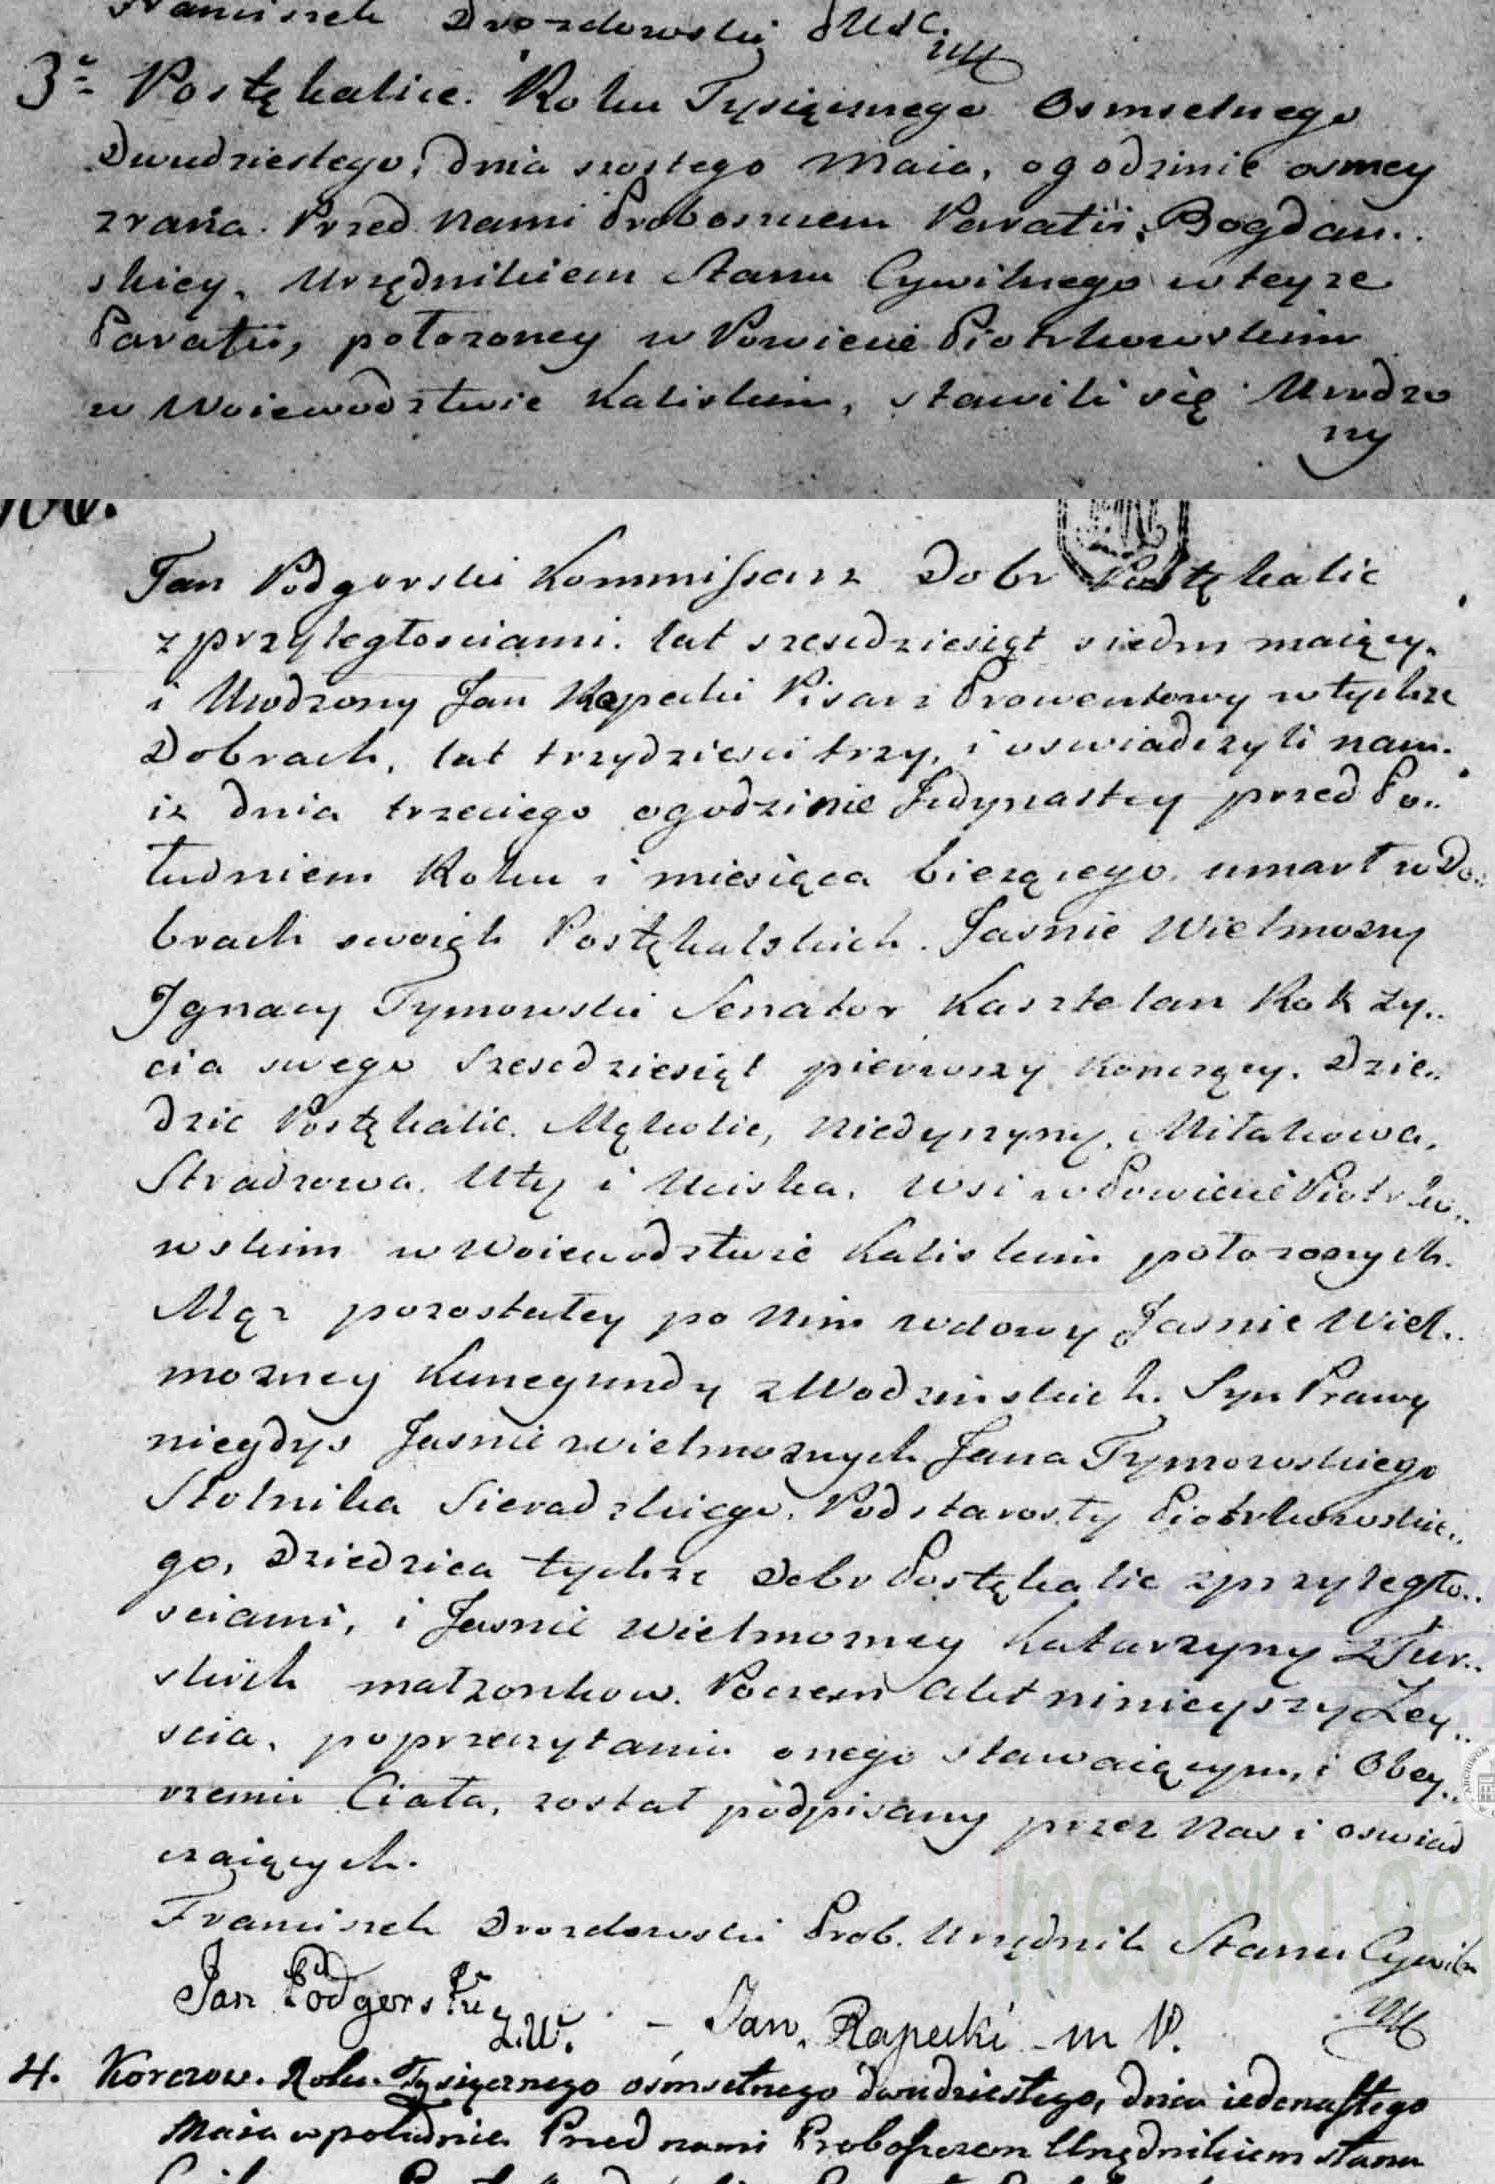 Franciszek Drozdowski USC.
3. Postękalice. Roku Tysiącznego Osmsetnego
Dwudziestego, dnia szostego Maia, o godzinie osmey
zrana. Przed Nami Proboszczem Parafii Bogdan..
skiey, Urzędnikiem Stanu Cywilnego w teyze
Parafii, położoney w Powiecie Piotrkowskim
w Woiewodztwie Kaliskim, stawili się Urodzo
ny
Jan Podgorski Kommissarz Dobr Postękalic
z przyległościami. lat szescdziesiąt siedm maiący,
i Urodzony Jan Rapecki Pisarz Prowentowy w tychże
Dobrach, lat trzydziesci trzy, i oswiadczyli nam.
iz dnia trzeciego o godzinie Jedynastey przed Po..
łudniem Roku i miesiąca bieżącego. umarł w Do..
brach swoich Postękalskich. Jasnie Wielmozny
Ignacy Tymowski Senator Kasztelan Rok ży..
cia swego Szescdziesiąt pierwszy konczący. Dzie..
dzic Postękalic. Mąkolic, Niedyszyny, Miłakowa,
Stradzowa. Uty i Uciska. Wsi w Powiecie Piotrko..
wskim w Woiewodztwie Kaliskim położonych.
Mąz pozostałey po Nim wdowy Jasnie Wiel..
mozney Kunegundy z Wodzinskich. Syn Prawy
niegdys Jasnie wielmoznych Jana Tymowskiego
Stolnika Sieradzkiego. Podstarosty Piotrkowskie..
go, Dziedzica tychże Dobr Postękalic z przyległo..
sciami, i Jasnie Wielmozney Katarzyny z Tur..
skich małzonkow. Poczem Akt ninieyszy Zey..
scia, po przeczytaniu onego stawaiącym, i Obey..
rzeniu Ciała, został podpisany przez Nas i oswiad
czaiących.
Franciszek Drozdowski Prob. Urzędnik Stanu Cywiln
Jan Podgorski
– Jan Rapecki m P.
4. Korczow. Roku Tysiącznego osmsetnego dwudziestego, dnia iedenastego
Maia w południe Przed nami Proboszczem Urzędnikiem stanu
metryki.gen